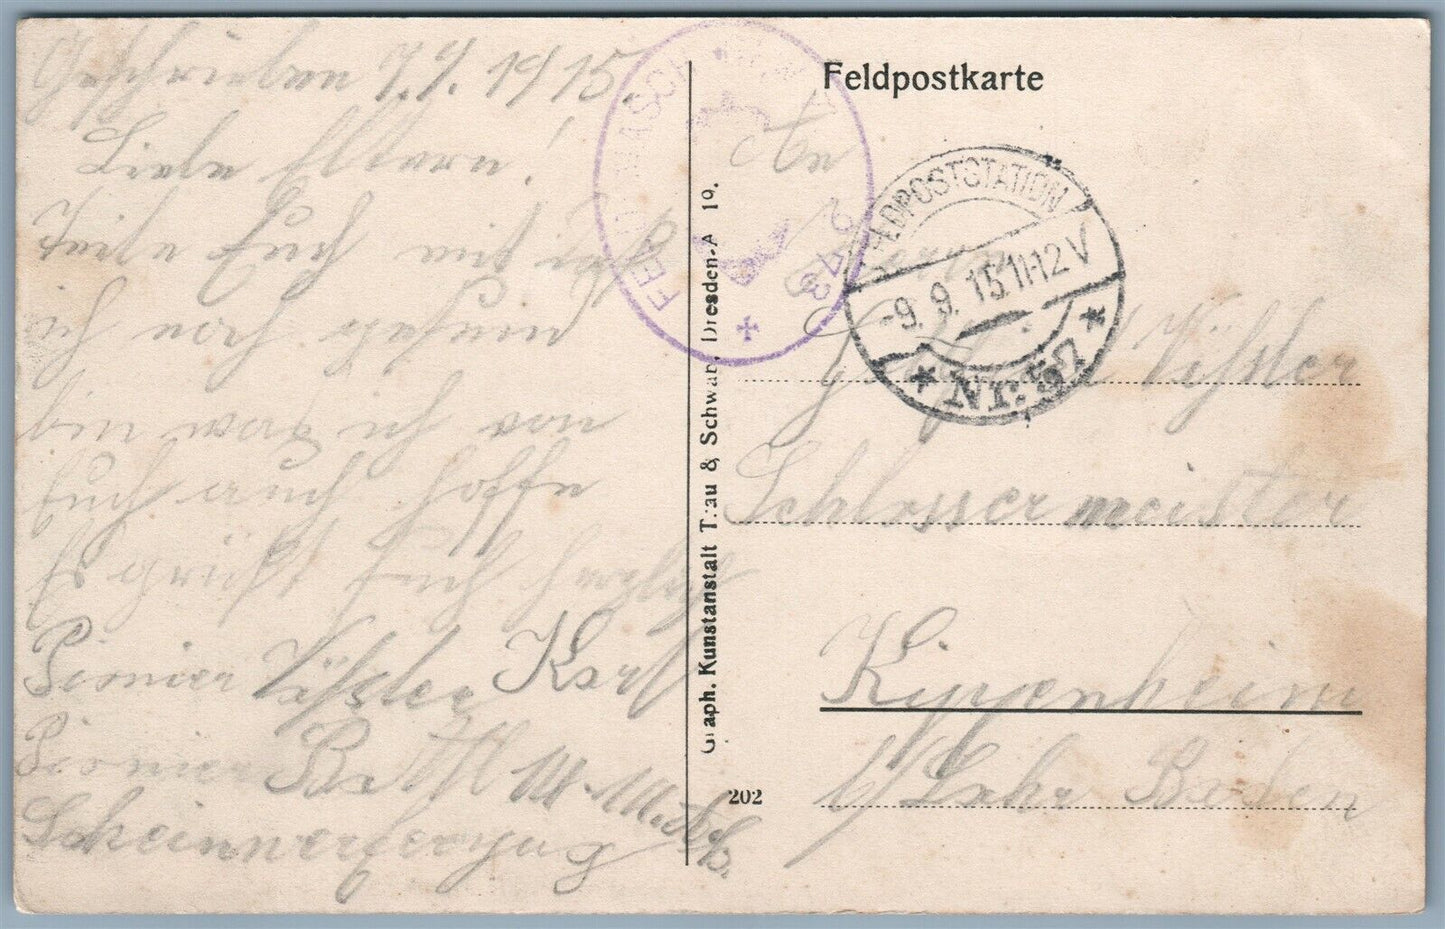 Geschrieben 7.9.1915.
Liebe Eltern!
Teile Euch mit daß
ich noch gesund
bin was ich von
Euch auch hoffe
Es grüßt Euch herzlich
Pionier Vißler Karl
Pionier Batl 14
Scheinwerferzug
Feldpostkarte
An
Herrn
Vißler
Schlossermeister
Kippenheim
b/ Lahr Baden
FELDPOSTSTATION
-9.9.15. 11-12 V
* Nr. 57 *
273
Graph. Kunstanstalt Trau & Schwab, Dresden-A 19.
202